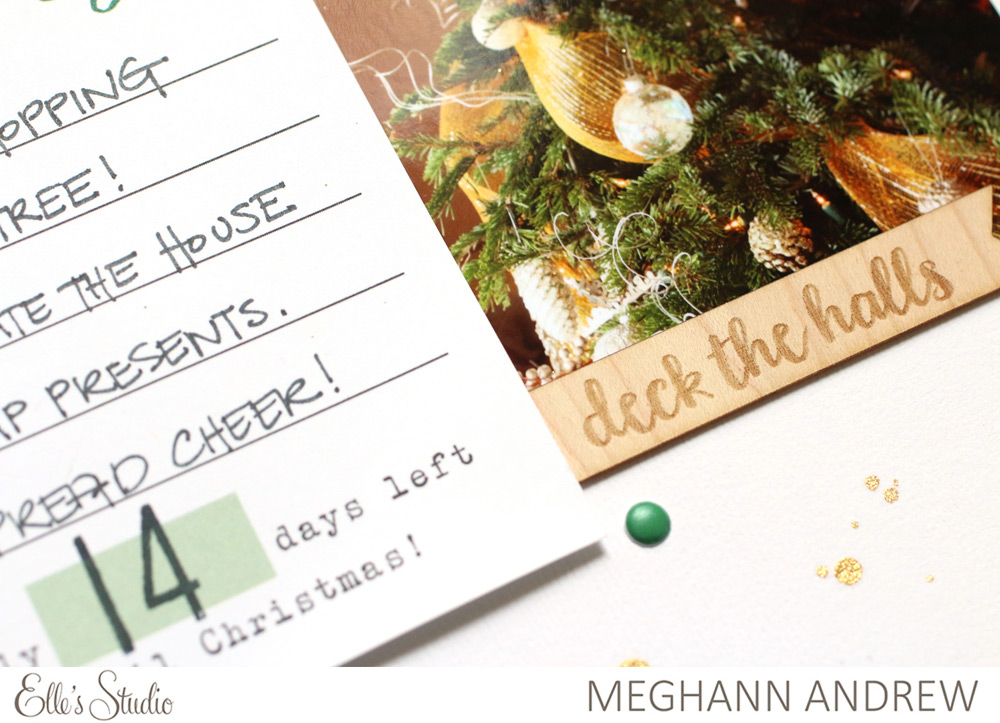 OPPING
TREE!
ATE THE HOUSE
AP PRESENTS.
PREAD CHEER!
14 days left
ly il Christmas!
deck the halls
Elle's Studio
MEGHANN ANDREW